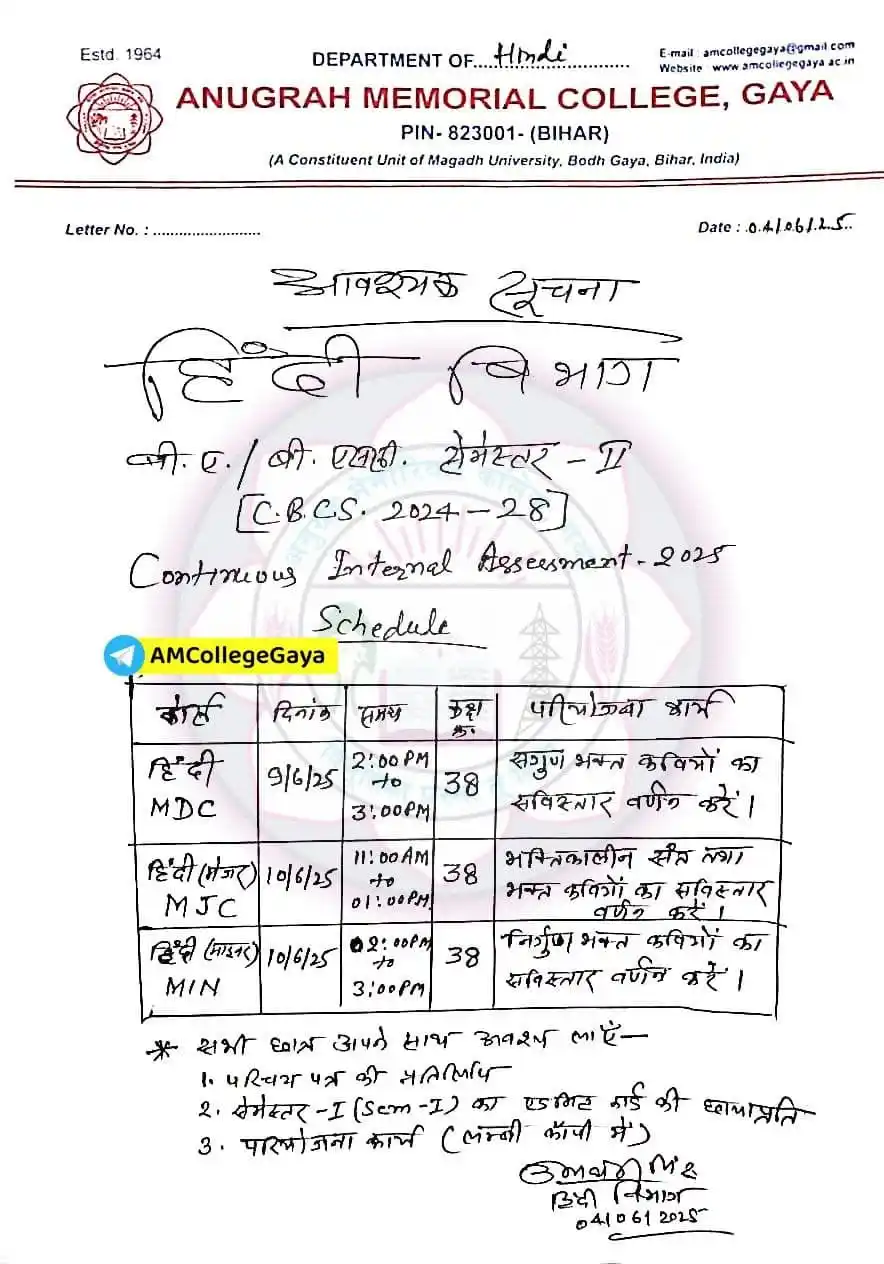 Estd. 1964
DEPARTMENT OF....Hindi..............
E-mail : amcollegegaya@gmail.com
Website : www.amcollegegaya.ac.in
ANUGRAH MEMORIAL COLLEGE, GAYA
PIN- 823001- (BIHAR)
(A Constituent Unit of Magadh University, Bodh Gaya, Bihar, India)
Letter No. : .........................
Date : .04/06/25..
आवश्यक सूचना
हिंदी विभाग
बी.ए./बी.एससी. सेमेस्टर - II
[C.B.C.S. 2024-28]
Continuous Internal Assessment - 2025
Schedule
AMCollegeGaya
कोर्स दिनांक समय कक्ष क्र. परियोजना कार्य
हिंदी MDC 9/6/25 2:00PM to 3:00PM 38 सगुण भक्त कवियों का सविस्तार वर्णन करें।
हिंदी (मेजर) MJC 10/6/25 11:00AM to 01:00PM 38 भक्तिकालीन संत तथा भक्त कवियों का सविस्तार वर्णन करें।
हिंदी (माइनर) MIN 10/6/25 02:00PM to 3:00PM 38 निर्गुण भक्त कवियों का सविस्तार वर्णन करें।
* सभी छात्र अपने साथ अवश्य लाएँ—
1. परिचय पत्र की प्रतिलिपि
2. सेमेस्टर-I (Sem-I) का एडमिट कार्ड की छायाप्रति
3. परियोजना कार्य (लम्बी कॉपी में)
हिंदी विभाग
04/06/2025